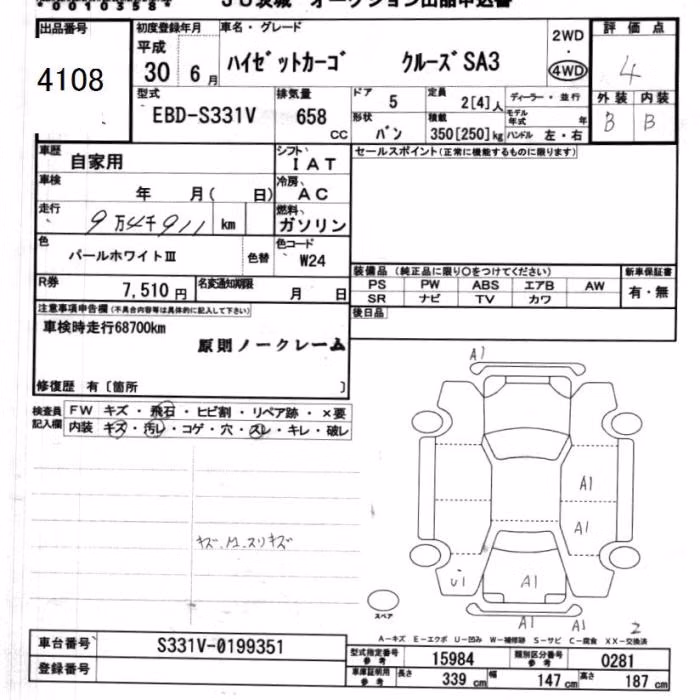 00103584
JU茨城 オークション出品申込書
出品番号
4108
初度登録年月
平成
30 6月
車名・グレード
ハイゼットカーゴ クルーズSA3
2WD
・
4WD
評価点
4
型式
EBD-S331V
排気量
658
cc
ドア 5
定員 2[4]人
ディーラー・並行
形状 バン
積載 350[250]kg
モデル年式 年
ハンドル 左・右
外装 内装
B B
車歴
自家用
シフト
IAT
セールスポイント(正常に機能するものに限ります)
車検
年 月( 日)
冷房
AC
走行
9万4千911 km
燃料
ガソリン
色
パールホワイトⅢ
色替
色コード
W24
装備品 (純正品に限り〇をつけてください)
PS PW ABS エアB AW
SR ナビ TV カワ
新車保証書
有・無
R券
7,510円
名変通知期限
月 日
後日品
注意事項申告欄(不具合内容等は具体的に記入して下さい)
車検時走行68700km
原則ノークレーム
修復歴 有〔箇所 〕
検査員
記入欄
FW キズ・飛石・ヒビ割・リペア跡・×要
内装 キズ・汚レ・コゲ・穴・スレ・キレ・破レ
A1
A1
A1
U1
A1
A1
A1
2
スペア
A-キズ E-エクボ U-凹み W-補修跡 S-サビ C-腐食 XX-交換済
車台番号
S331V-0199351
登録番号
型式指定番号
参考
15984
類別区分番号
参考
0281
車庫証明用
参考
長さ 339cm
幅 147cm
高さ 187cm